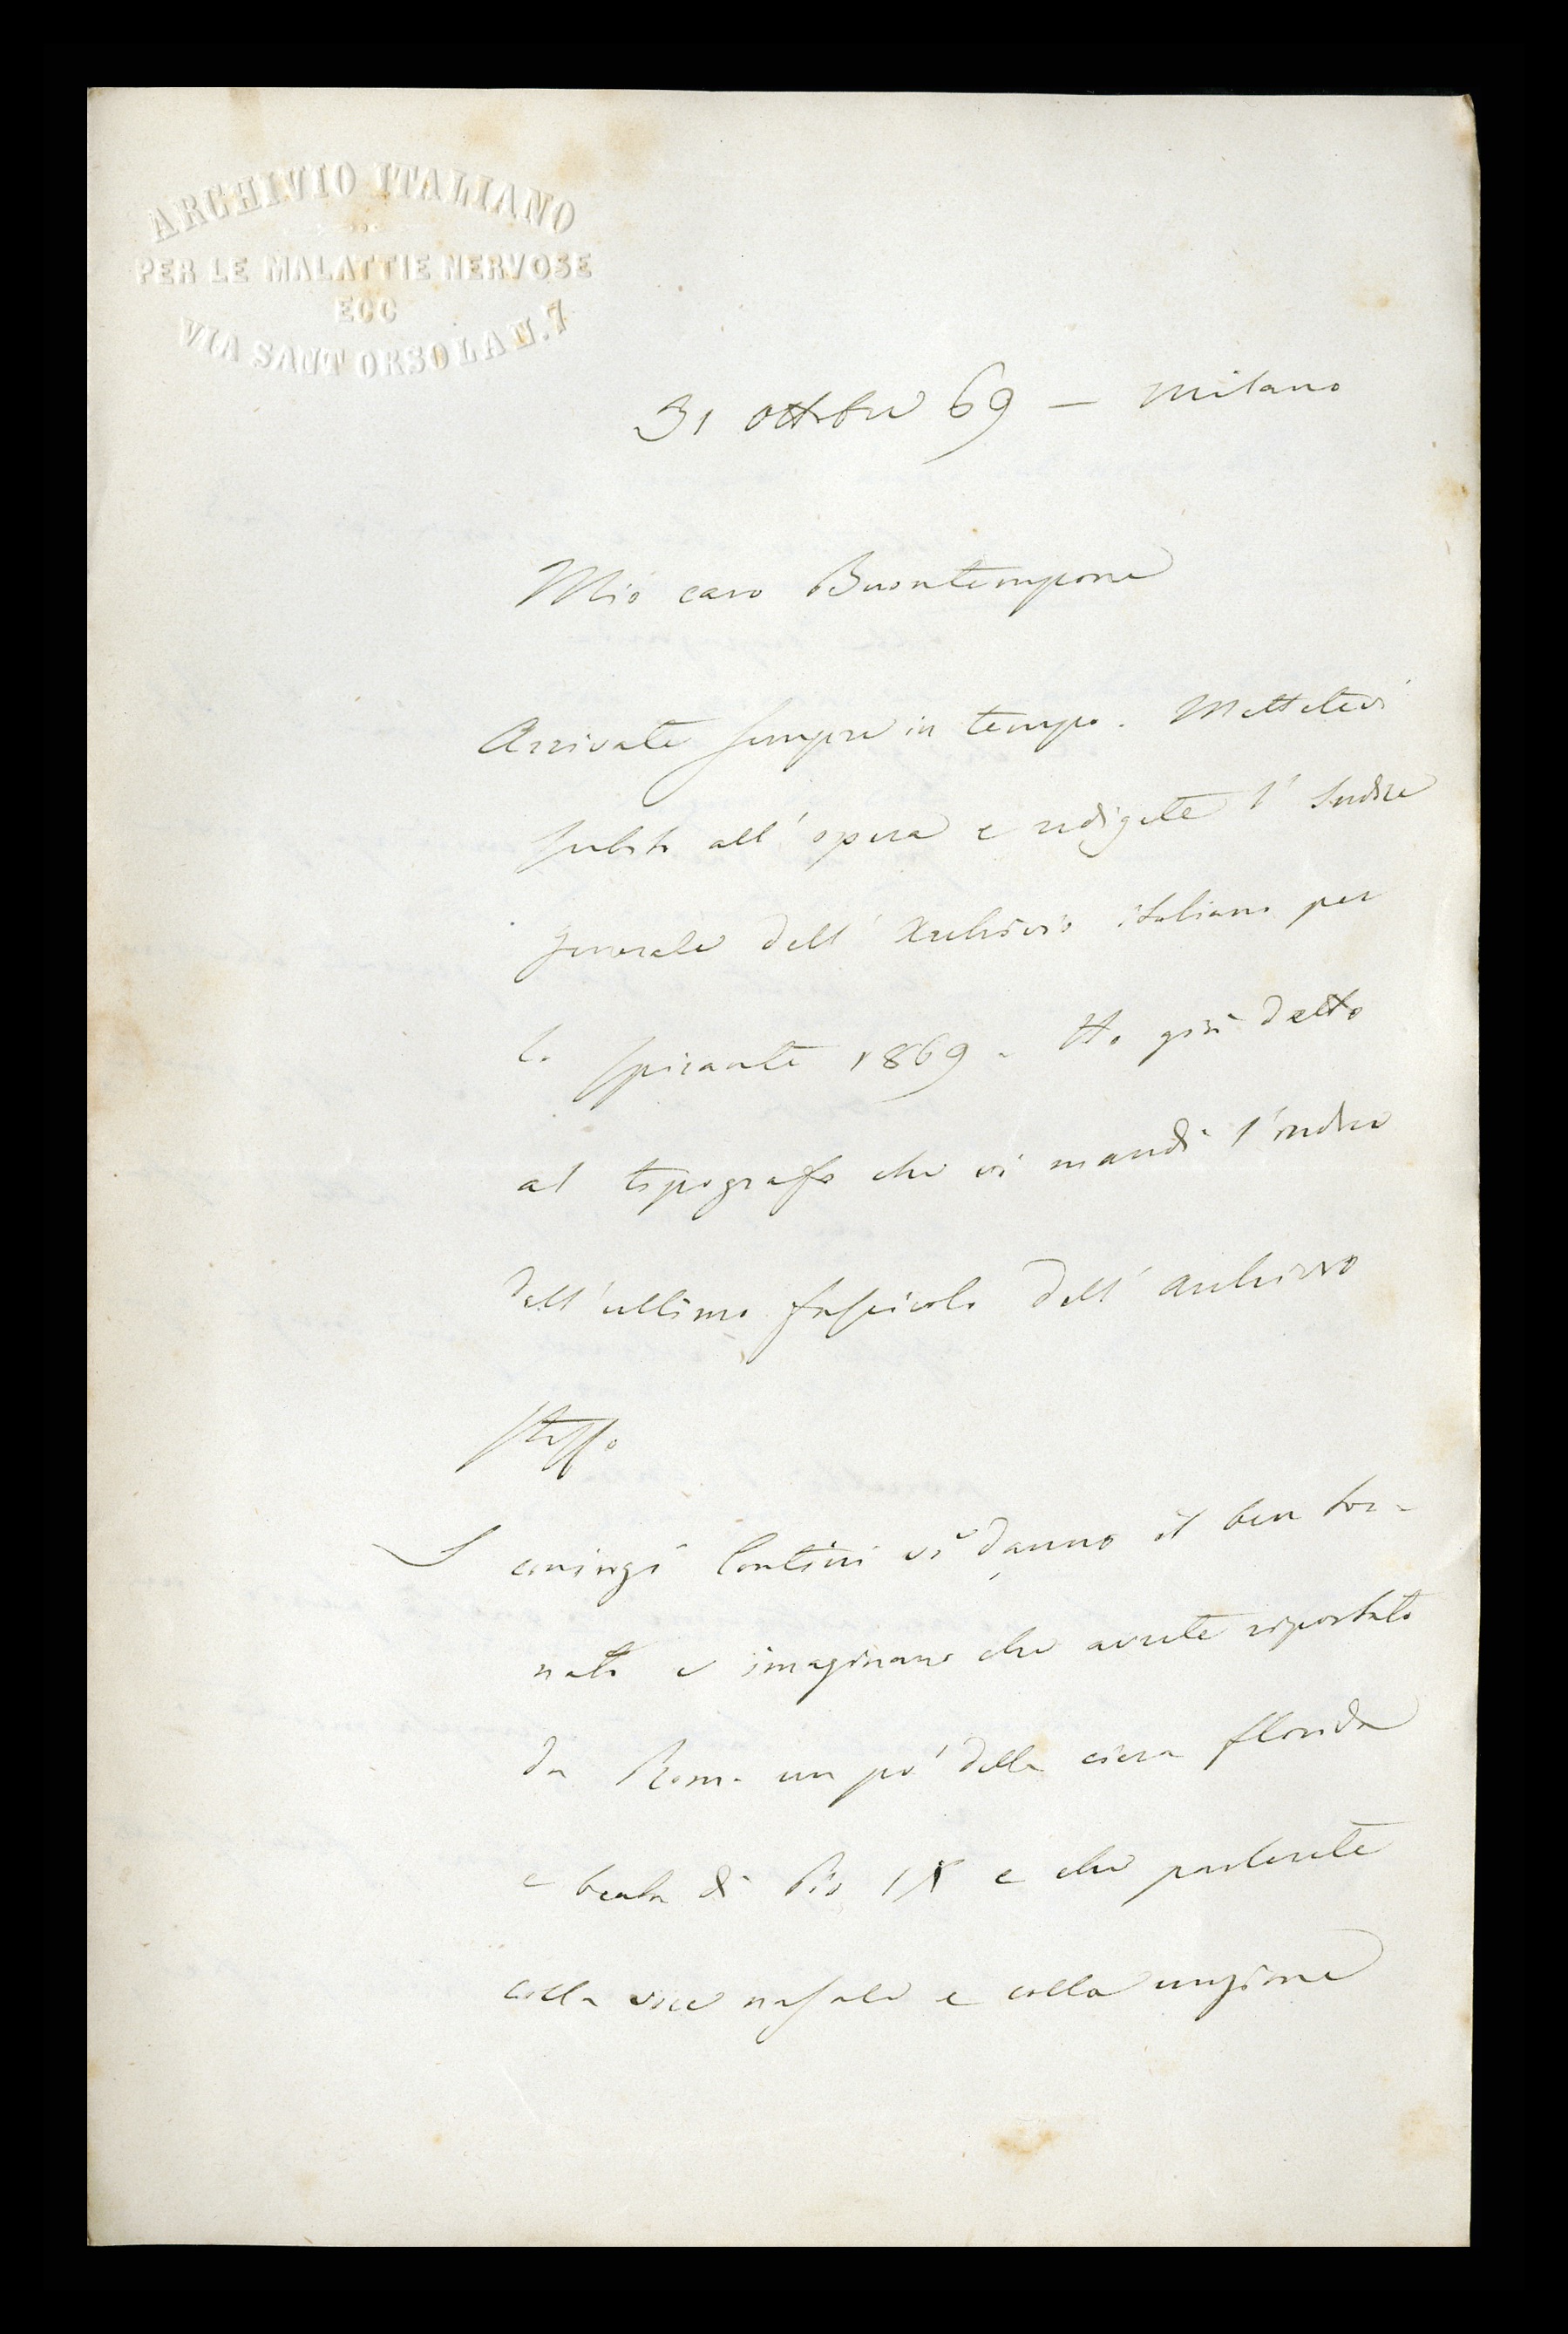 ARCHIVIO ITALIANO
PER LE MALATTIE NERVOSE
ECC
VIA SANT ORSOLA N. 7
31 ottobre 69 — Milano
Mio caro Buontempone
Arrivate sempre in tempo. Mettetevi
subito all'opera e redigete l'Indice
generale dell'Archivio italiano per
lo spirante 1869. Ho già detto
al tipografo che vi mandi l'indice
dell'ultimo fascicolo dell'archivio
stesso
I coniugi Contini vi danno il ben tor-
nato e imaginano che avrete riportato
da Roma un pò della ciera florida
e beata di Pio IX e che parlerete
colla voce nasale e colla unzione